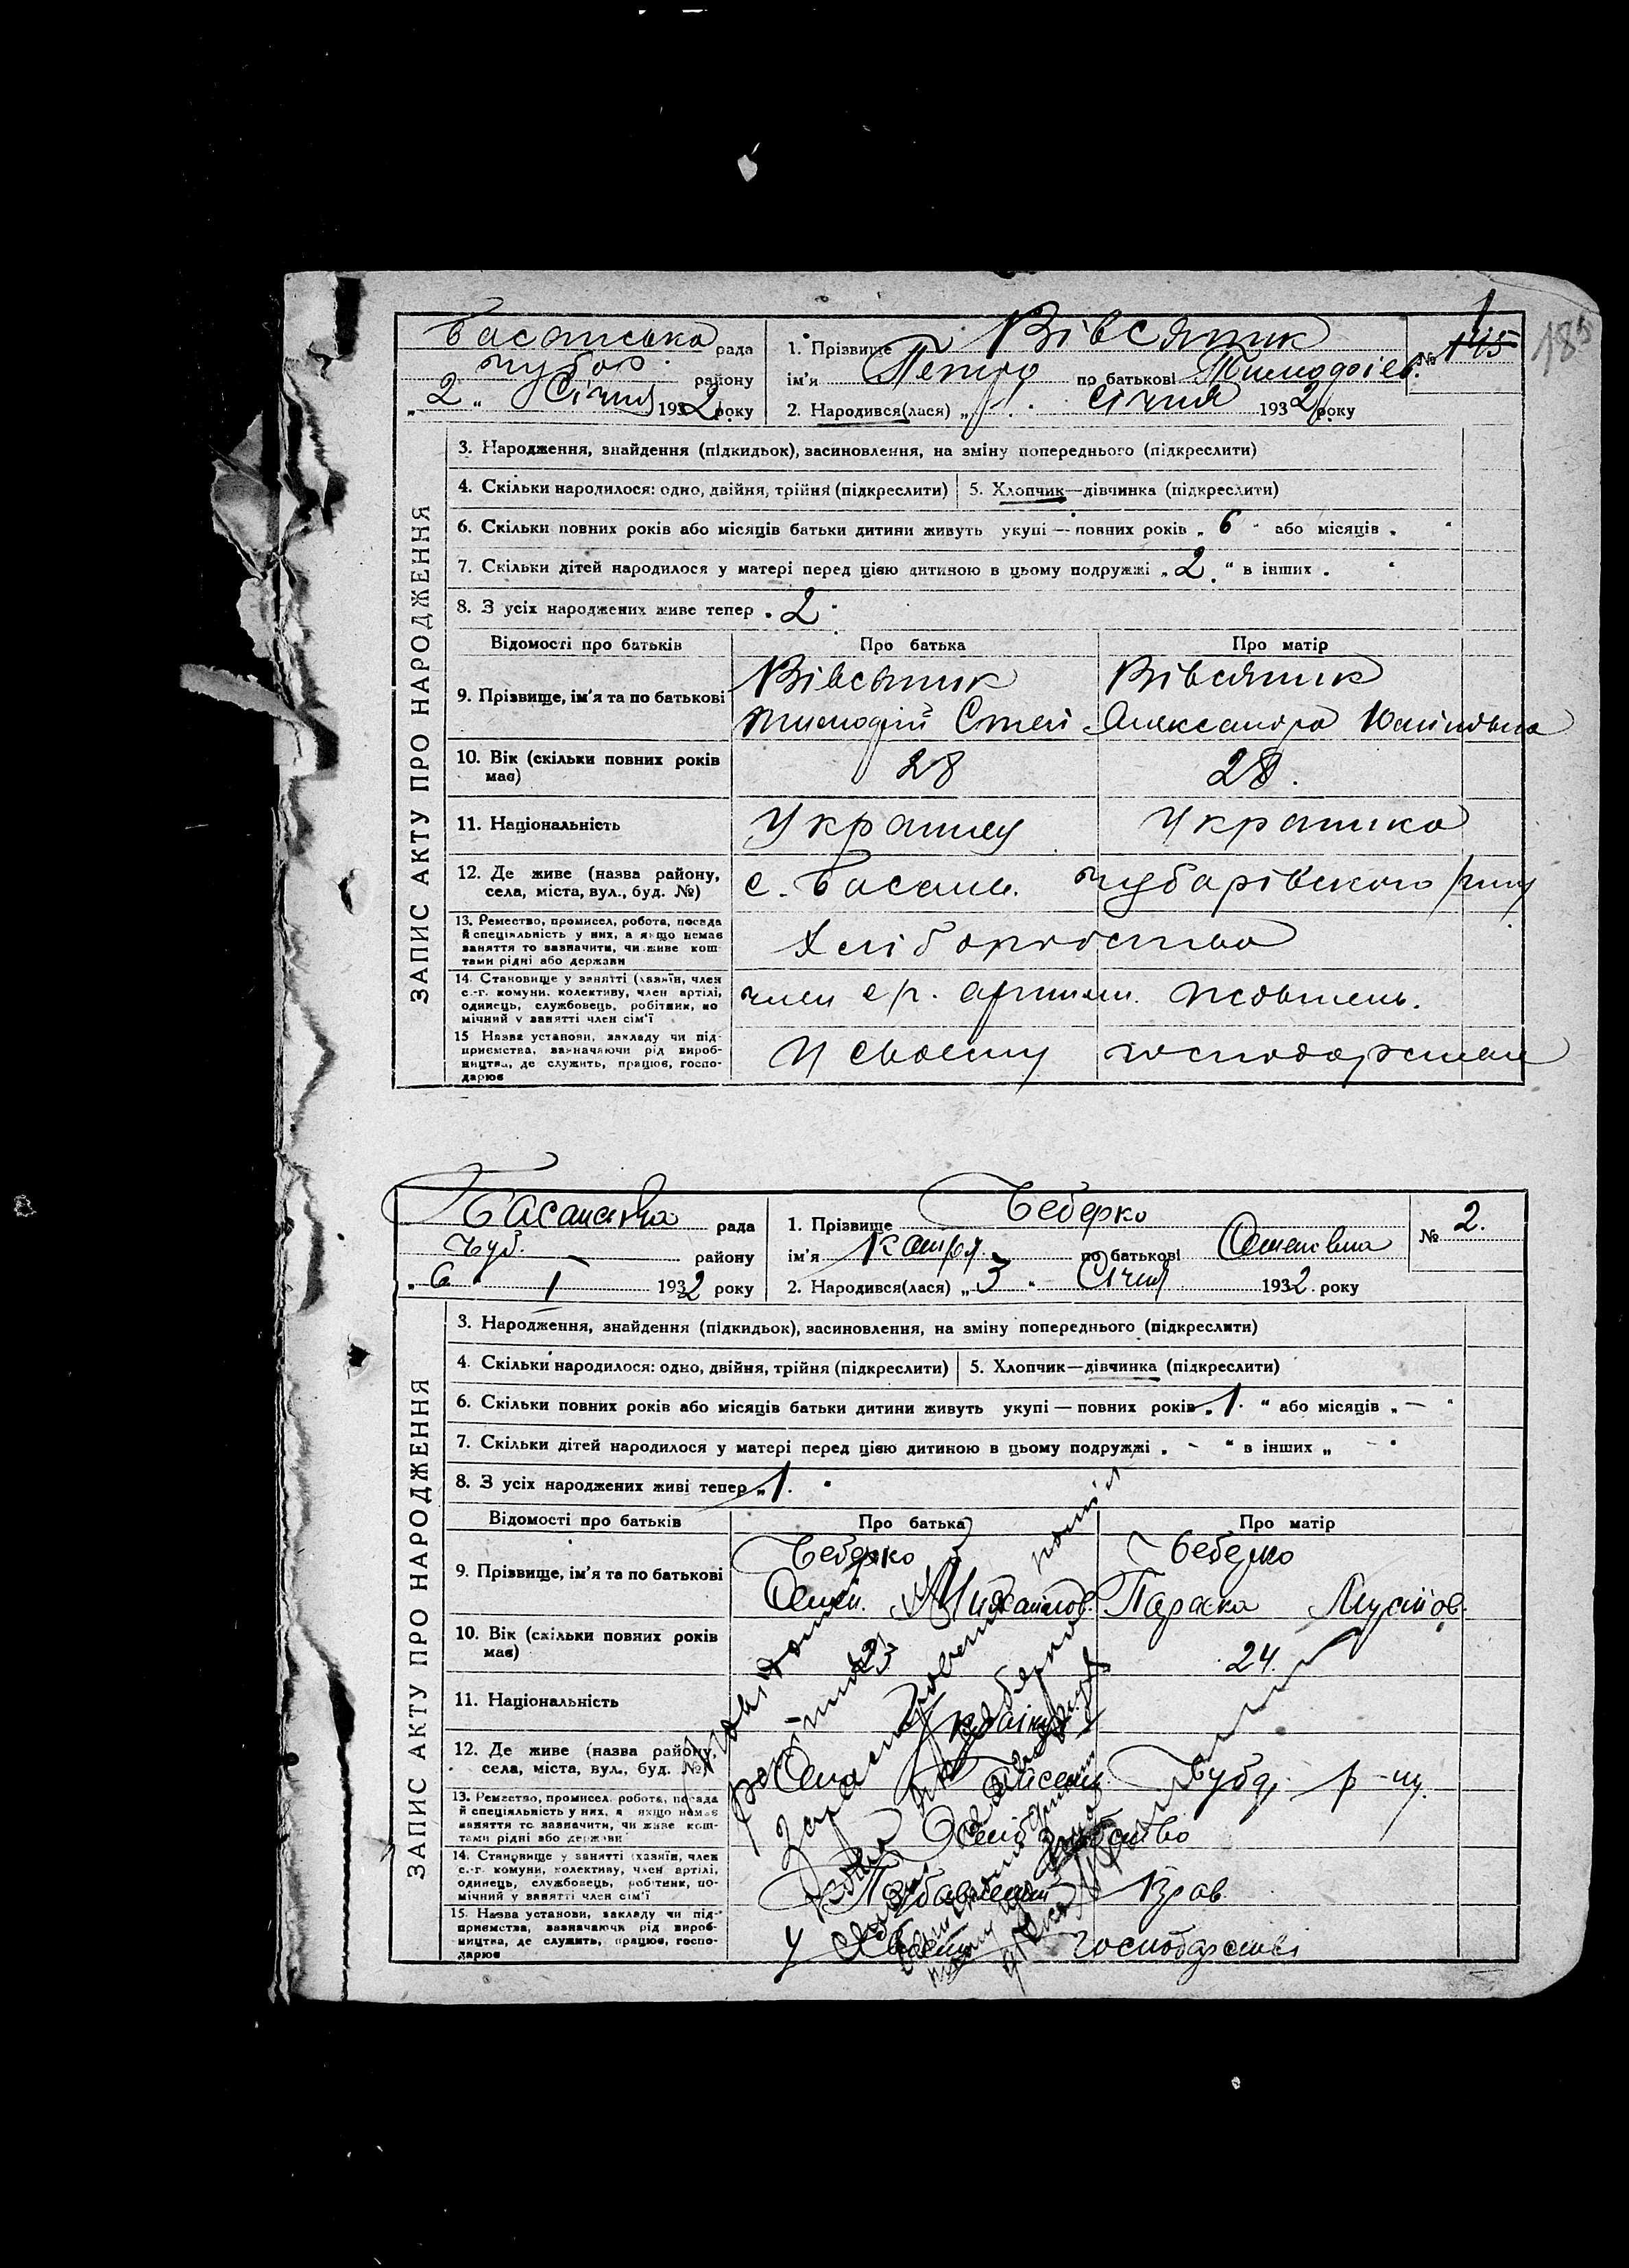 185
Басанська рада
Чубар. району
„2" Січня 1932 року
1. Прізвище Вівсяник
ім'я Петро по батькові Тимофіев.
2. Народився(лася) „1. Січня 1932 року
№ 1
145
ЗАПИС АКТУ ПРО НАРОДЖЕННЯ
3. Народження, знайдення (підкидьок), засиновлення, на зміну попереднього (підкреслити)
4. Скільки народилося: одно, двійня, трійня (підкреслити) 5. Хлопчик—дівчинка (підкреслити)
6. Скільки повних років або місяців батьки дитини живуть укупі — повних років „6" або місяців „ "
7. Скільки дітей народилося у матері перед цією дитиною в цьому подружжі „2" в інших „ "
8. З усіх народжених живе тепер „2"
Відомості про батьків Про батька Про матір
9. Прізвище, ім'я та по батькові Вівсяник Вівсяник
Тимофій Олександра
10. Вік (скільки повних років має) 28 28.
11. Національність Украинец Украинка
12. Де живе (назва району, села, міста, вул., буд. №) с. Басань Чубарівского р-ну
13. Ремество, промисел, робота, посада й спеціяльність у них, а якщо немає заняття то зазначити, чи живе коштами рідні або держави Хліборобство
14. Становище у занятті (хазяїн, член с.-г. комуни, колективу, член артілі, одинець, службовець, робітник, помічний у занятті член сім'ї член артили Жовтень.
15 Назва установи, закладу чи підприємства, зазначаючи рід виробництва, де служить, працює, господарює У своему господарстви
Басанська рада
Чуб. району
„6" I 1932 року
1. Прізвище Чеберко
ім'я Катря по батькові Семенівна
2. Народився(лася) „3" Січня 1932 року
№ 2.
ЗАПИС АКТУ ПРО НАРОДЖЕННЯ
3. Народження, знайдення (підкидьок), засиновлення, на зміну попереднього (підкреслити)
4. Скільки народилося: одно, двійня, трійня (підкреслити) 5. Хлопчик—дівчинка (підкреслити)
6. Скільки повних років або місяців батьки дитини живуть укупі — повних років „1." або місяців „—"
7. Скільки дітей народилося у матері перед цією дитиною в цьому подружжі „-" в інших „-"
8. З усіх народжених живі тепер „1."
Відомості про батьків Про батька Про матір
9. Прізвище, ім'я та по батькові Чеберко Чеберко
Семен Михайлов. Параска Мусійов.
10. Вік (скільки повних років має) 23 24.
11. Національність Українці
12. Де живе (назва району, села, міста, вул., буд. №) Села Басань Чубар. р-ну.
13. Ремество, промисел, робота, посада й спеціяльність у них, а якщо немає заняття то зазначити, чи живе коштами рідні або держави Хліборобство
14. Становище у занятті (хазяїн, член с.-г. комуни, колективу, член артілі, одинець, службовець, робітник, помічний у занятті член сім'ї Позбавлений Прав
15. Назва установи, закладу чи підприємства, зазначаючи рід виробництва, де служить, працює, господарює У своєму господарстві